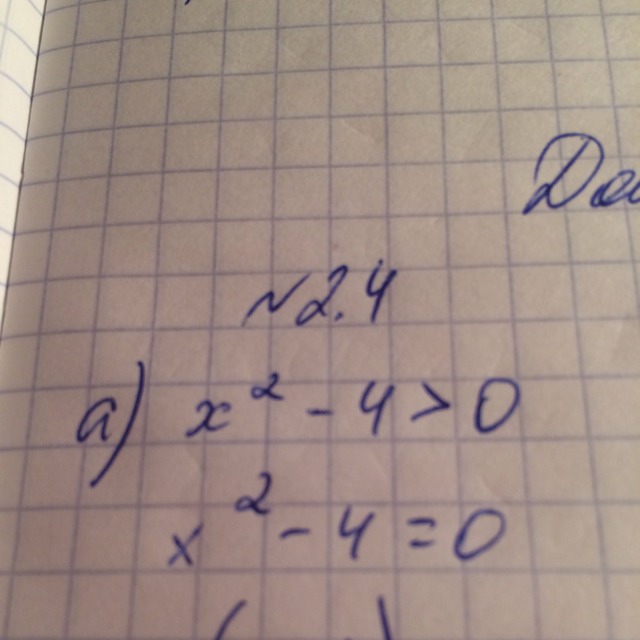 №2.4
а) x² - 4 > 0
x² - 4 = 0